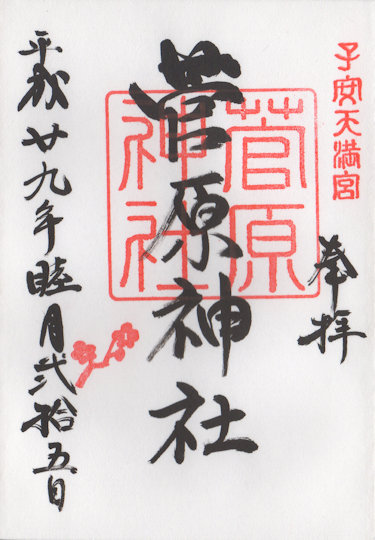 子安天満宮
奉拝
菅原神社
菅原神社
平成廿九年睦月弐拾五日